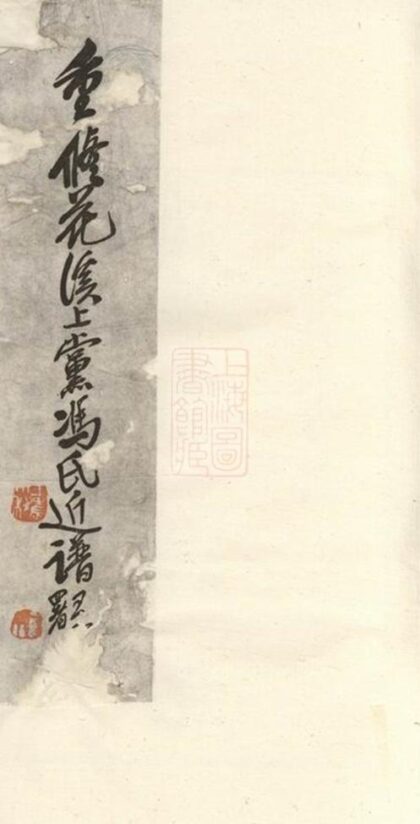 重修花溪上黨馮氏近譜
上海圖
書館藏